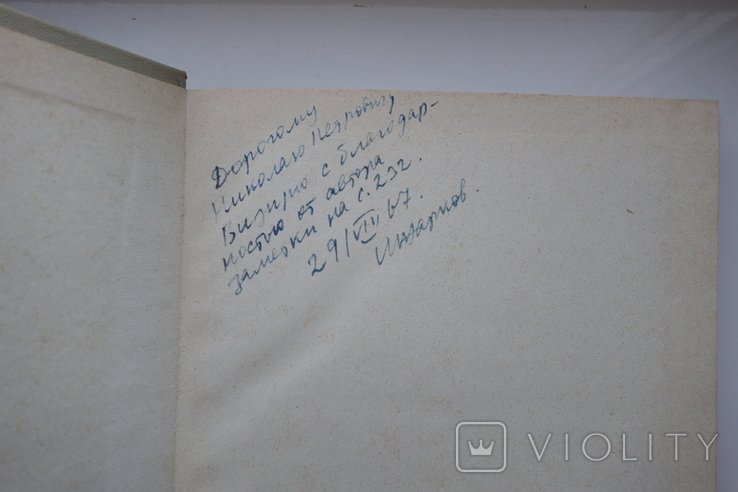 Дорогому
Николаю Петровичу
Визирю с благодар-
ностью от автора
заметки на с. 292.
29/VIII 67.
ИЖарков.
VIOLITY